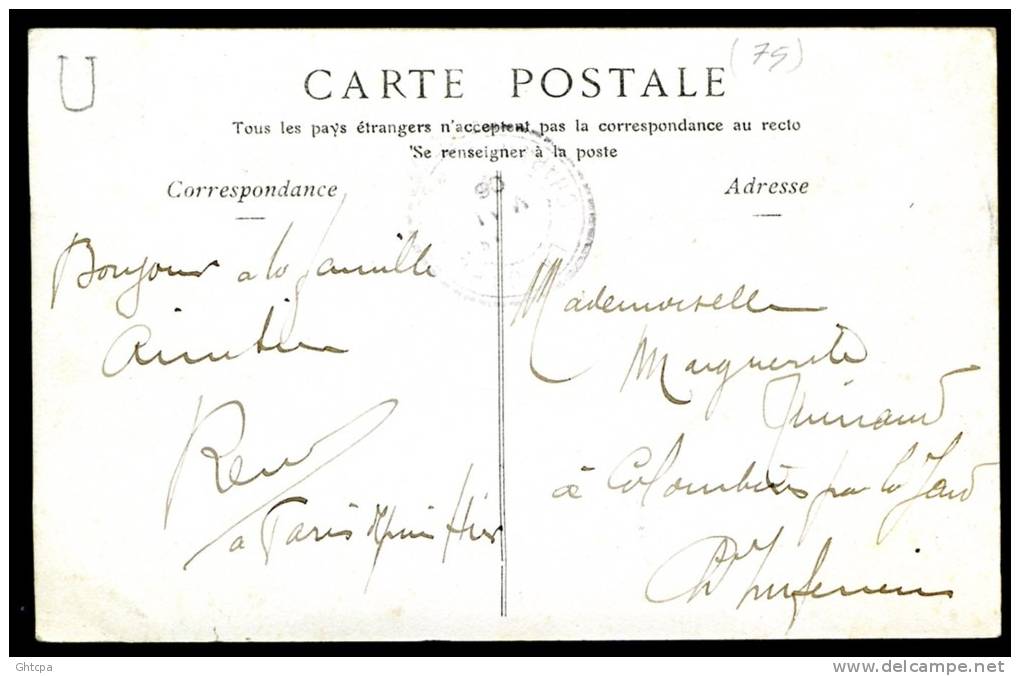 U
(75)
CARTE POSTALE
Tous les pays étrangers n'acceptent pas la correspondance au recto
Se renseigner à la poste
Correspondance
Adresse
Bonjour a la famille
René
a Paris depuis Hier
Mademoiselle
Marguerite
à Colombiers par le Jard
Ch^te Inferieure
Ghtcpa
http://www.delcampe.net